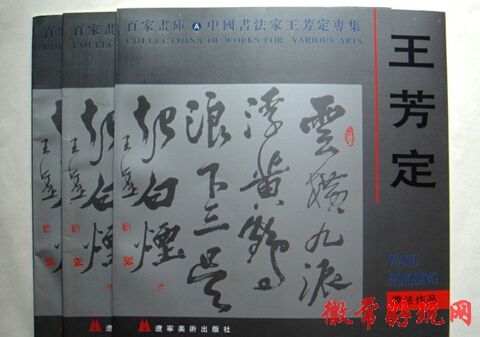 百家畫庫 A 中國書法家王芳定專集
COLLECTIONS OF WORKS FOR VARIOUS ARTS
雲橫九派
浮黃鶴
浪下三吳
起白煙
王芳定
WANG
FANGDING
書法作品
遼寧美術出版社
百家
COLLE
起白煙
百
COLL
徽常好玩网